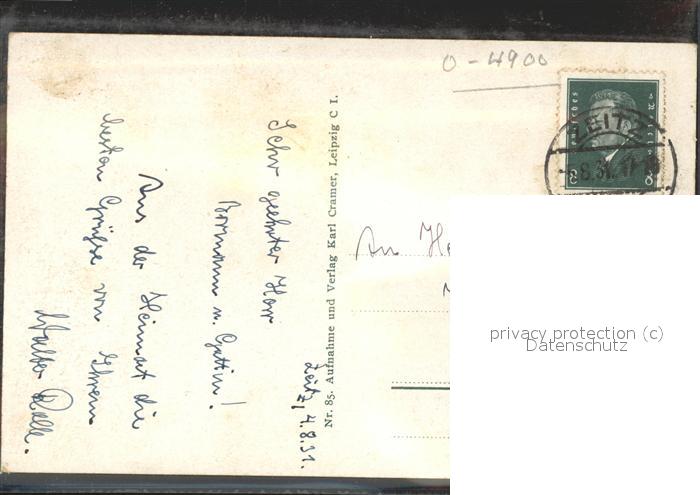 0 - 4900
Zeitz, 4.8.31.
Sehr geehrter Herr
Bormann u. Gattin!
Aus der Heimat die
besten Grüsse von Ihrem
Walter
Nr. 85. Aufnahme und Verlag Karl Cramer, Leipzig C I.
ZEITZ
8.31. 17-18
8 8
An
privacy protection (c)
Datenschutz